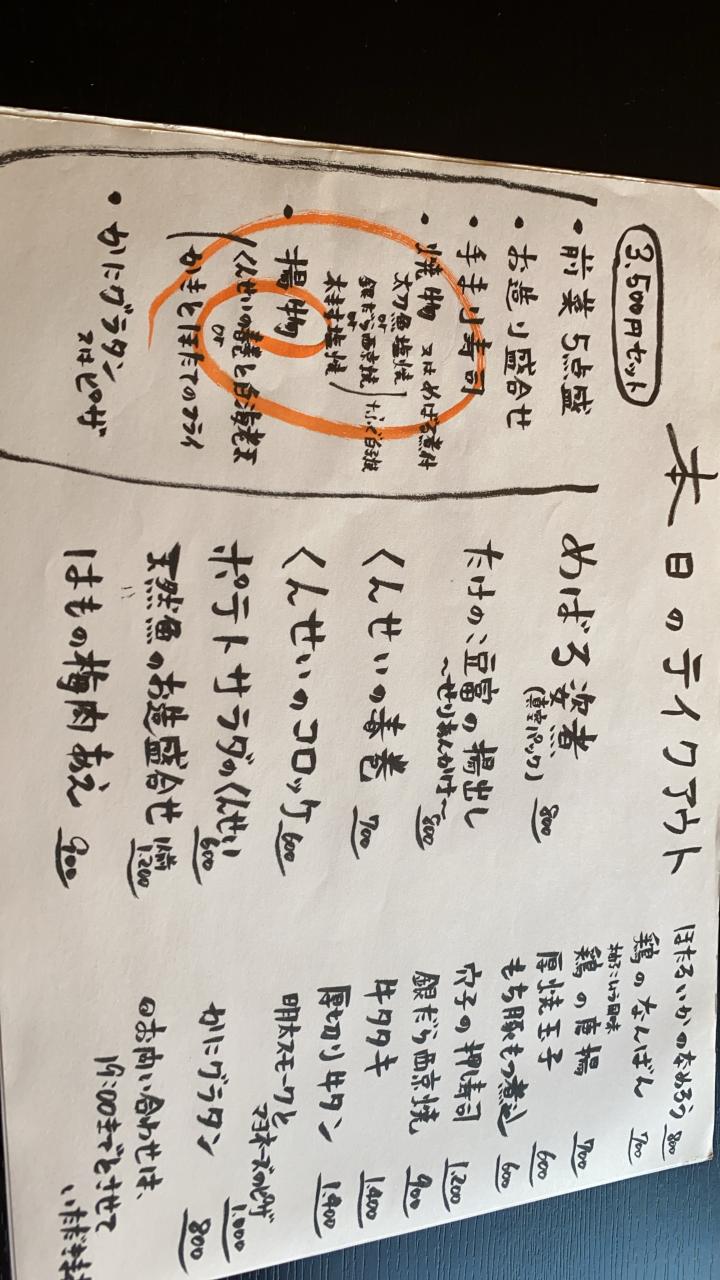 本日のテイクアウト
3,500円セット
・前菜5点盛
・お造り盛合せ
・手まり寿司
・焼物 又はめばる煮付
太刀魚塩焼
or
銀だら西京焼
・揚物
くんせいの春巻と白海老天
or
かきとほたてのフライ
・かにグラタン
又はピザ
めばる姿煮
(真空パック) 800
たけのこ豆富の揚出し
〜せりあんかけ〜 800
くんせいの春巻 700
くんせいのコロッケ 600
ポテトサラダのくんせい 600
天然魚のお造り盛合せ 1人前 1.200
はもの梅肉あえ 900
ほたるいかのなめろう 800
鶏のなんばん 700
柚子こしょう風味
鶏の唐揚 700
厚焼玉子 600
もち豚もつ煮込 600
穴子の押し寿司 1.200
銀だら西京焼 900
牛タタキ 1.400
厚切り牛タン 1.400
明太スモークと
マヨネーズのピザ 1.000
かにグラタン 800
◎お問い合わせは、
19:00までとさせて
いただきます